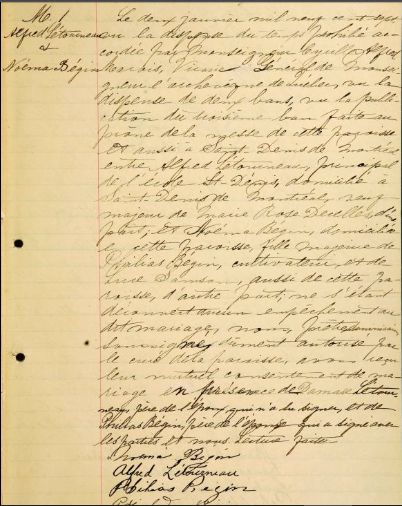 M. 1
Alfred Létourneau
&
Noëma Bégin
Le deux janvier mil neuf cent sept
vu la dispense du temps prohibé ac-
cordée par Monseigneur Cyrille Alfred
Marois, Vicaire Général de Monsei-
gneur l'archevêque de Québec, vu la
dispense de deux bans, vu la publi-
cation du troisième ban faite au
prône de la messe de cette paroisse
et aussi à Saint Denis de Montréal
entre Alfred Létourneau, principal
de l'école St-Denis, domicilié à
Saint Denis de Montréal, veuf
majeur de Marie Rose Decelles, d'une
part, et Noëma Bégin, domiciliée
en cette paroisse, fille majeure de
Philias Bégin, cultivateur, et de
Damson, aussi de cette pa-
roisse, d'autre part; ne s'étant
découvert aucun empêchement au
dit mariage, nous, prêtre
soussigné dûment autorisé par
le curé de la paroisse, avons reçu
leur mutuel consentement de ma-
riage en présence de Damase Létour-
neau, père de l'époux, qui n'a su signer, et de
Philias Bégin, père de l'épouse qui a signé avec
les parties et nous. Lecture faite
Noëma Bégin
Alfred Létourneau
Philias Begin